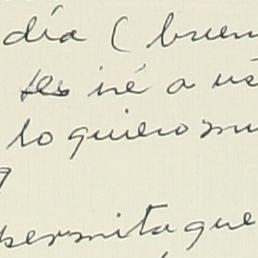 día ( buen
les iré a
lo quiero mu
permita que